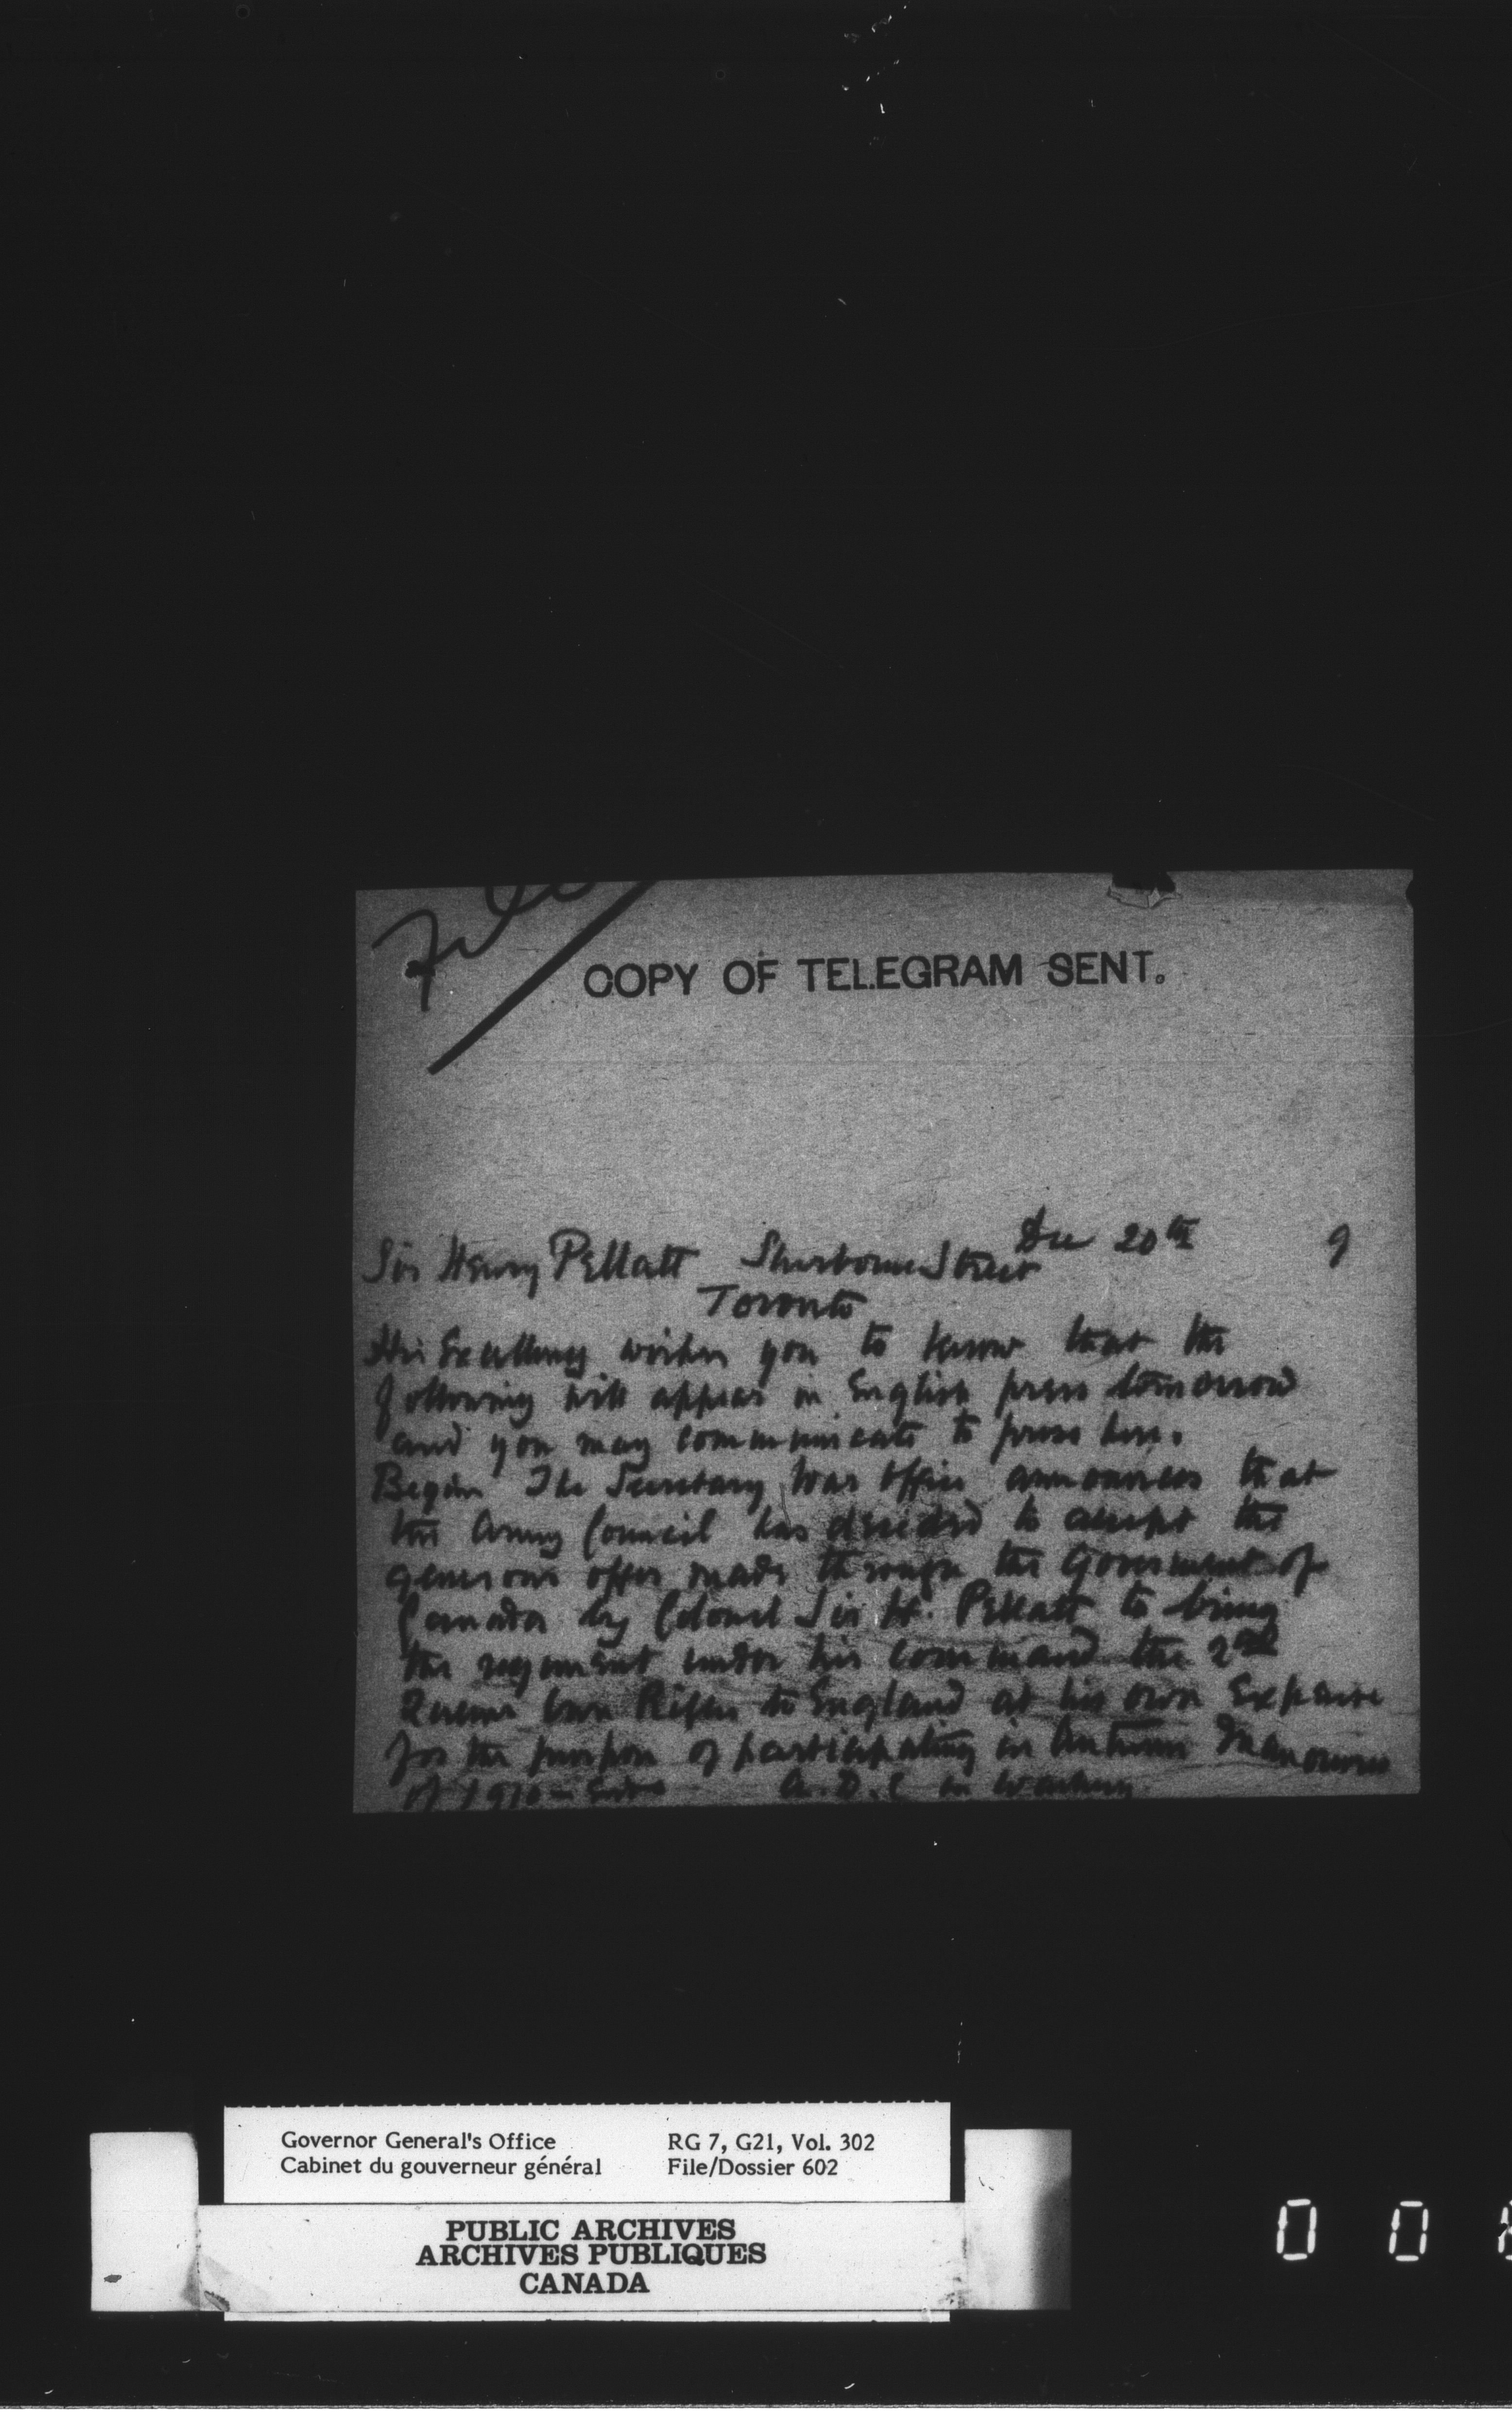 File
COPY OF TELEGRAM SENT.
Dec 20th 9
Sir Henry Pellatt Sherbourne Street
Toronto
His Excellency wishes you to know that the
following will appear in English press tomorrow
and you may communicate to press here.
Begins The Secretary War Office announces that
the Army Council has decided to accept the
generous offer made through the Government of
Canada by Colonel Sir H. Pellatt to bring
the regiment under his command the 2nd
Queens Own Rifles to England at his own Expense
for the purpose of participating in Autumn Manouvres
of 1910 – Ends A.D.C in Waiting
Governor General's Office RG 7, G21, Vol. 302
Cabinet du gouverneur général File/Dossier 602
PUBLIC ARCHIVES
ARCHIVES PUBLIQUES
CANADA
0 0